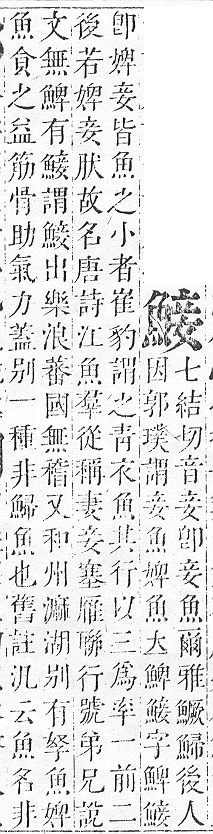 鯜七結切音妾卽妾魚爾雅鱖鯞後人
因郭璞謂妾魚婢魚大䱝鯜字䱝鯜
卽婢妾皆魚之小者崔豹謂之靑衣魚其行以三爲率一前二
後若婢妾肰故名唐詩江魚羣從稱妻妾塞雁聯行號弟兄說
文無䱝有鯜謂鯜出樂浪蕃國無稽又和州㴺湖別有孥魚婢
魚食之益筋骨助氣力蓋別一種非鯞魚也舊註汎云魚名非